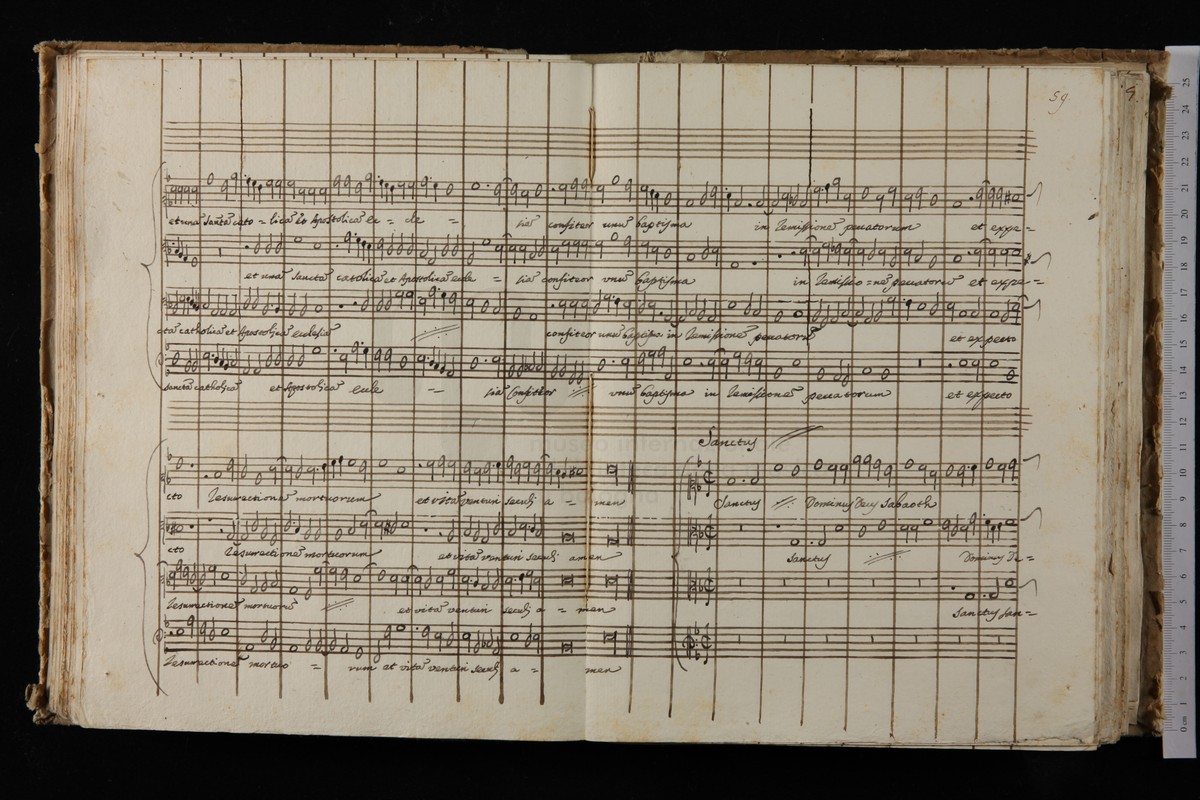 59.
et una sancta cato = lica et Apostolica ec = cle = sia confiteor unu baptisma in Remissione peccatorum et expe =
et una sancta catolica et Apostolica eccle = sia confiteor unu baptisma in Remissio = ne peccatoru et expe =
cta catholica et Apostolica ecclesia confiteor unu baptisma in Remissione peccatoru et expecto
sancta catholica et Apostolica eccle = sia Confiteor unu baptisma in Remissione peccatorum et expecto
Sanctus
cto Resurectione mortuorum et vita venturi seculi a = men Sanctus Dominus Deus Sabaoth
cto Resurrectione mortuorum et vita venturi seculi amen Sanctus Dominus De =
Resurectione mortuoru et vita venturi seculi a = men Sanctus San =
Resurrectione mortuo = rum et vita venturi seculi a = men
museo internazionale